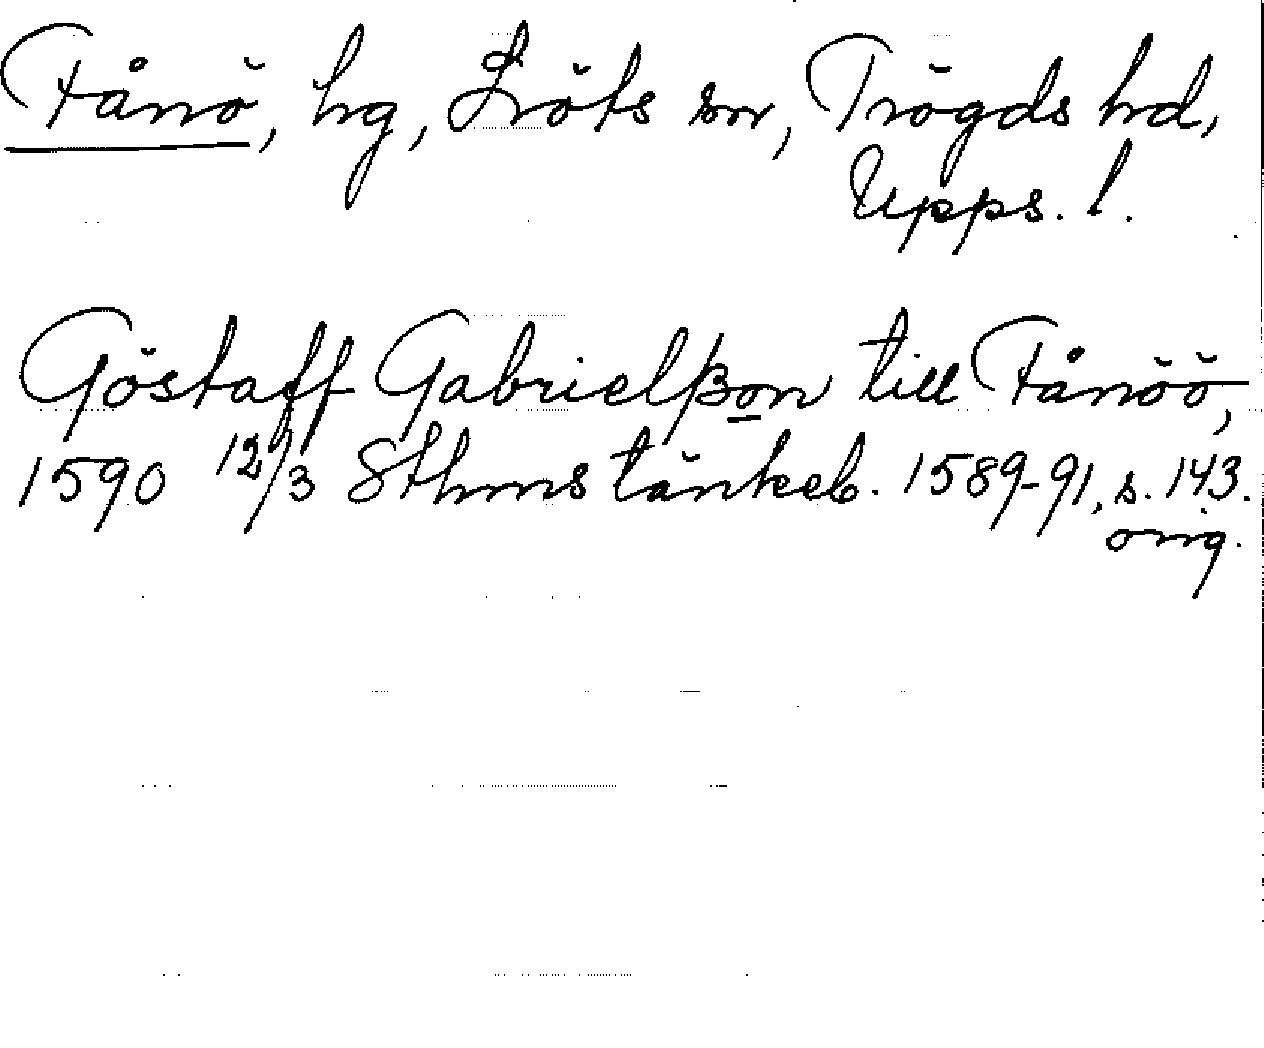 Fånö, hg, Löts sn, Trögds hd,
Upps. l.
Göstaff Gabrielßon till Fånöö,
1590 12/3 Sthms tänkeb. 1589-91, s. 143.
orig.